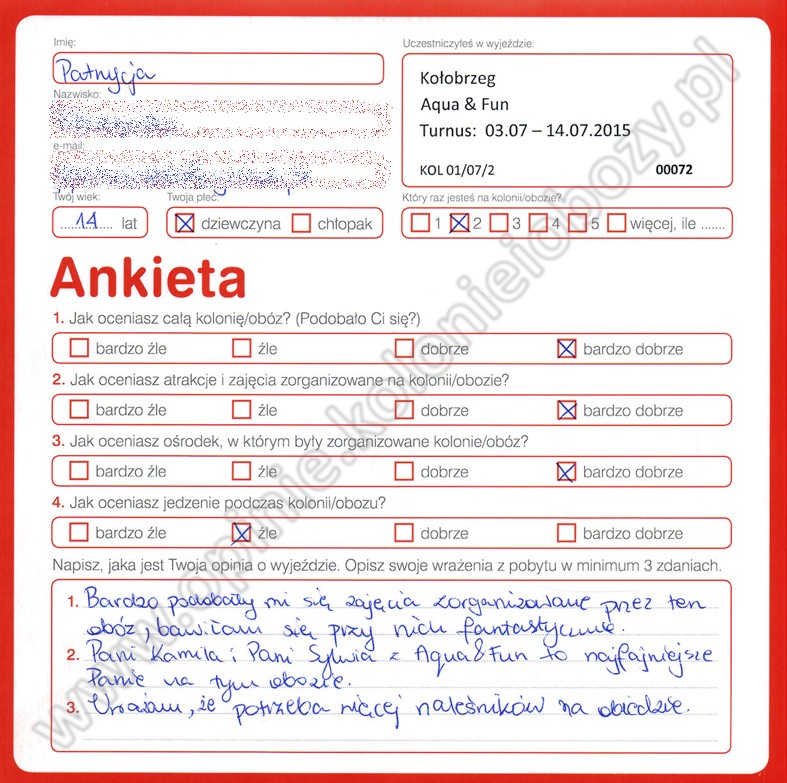 Imię:
Uczestniczyłeś w wyjeździe:
Patrycja
Kołobrzeg
Nazwisko:
Aqua & Fun
Turnus: 03.07 – 14.07.2015
e-mail:
KOL 01/07/2 00072
Twój wiek:
Twoja płeć:
Który raz jesteś na kolonii/obozie?
14 lat
dziewczyna chłopak
1 2 3 4 5 więcej, ile .......
Ankieta
1. Jak oceniasz całą kolonię/obóz? (Podobało Ci się?)
bardzo źle źle dobrze bardzo dobrze
2. Jak oceniasz atrakcje i zajęcia zorganizowane na kolonii/obozie?
bardzo źle źle dobrze bardzo dobrze
3. Jak oceniasz ośrodek, w którym były zorganizowane kolonie/obóz?
bardzo źle źle dobrze bardzo dobrze
4. Jak oceniasz jedzenie podczas kolonii/obozu?
bardzo źle źle dobrze bardzo dobrze
Napisz, jaka jest Twoja opinia o wyjeździe. Opisz swoje wrażenia z pobytu w minimum 3 zdaniach.
1. Bardzo podobały mi się zajęcia zorganizowane przez ten
obóz, bawiłam się przy nich fantastycznie.
2. Pani Kamila i Pani Sylwia z Aqua&Fun to najfajniejsze
Panie na tym obozie.
3. Uważam, że potrzeba więcej naleśników na obiedzie.
www.opinie.kolonieiobozy.pl